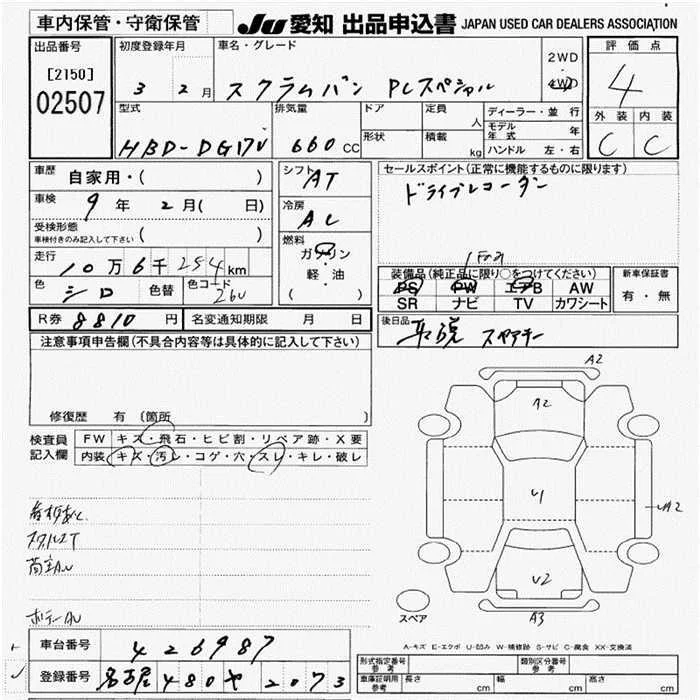 車内保管・守衛保管
JU 愛知 出品申込書 JAPAN USED CAR DEALERS ASSOCIATION
出品番号 初度登録年月 車名・グレード 評価点
[2150]
02507
3 2月 スクラムバン PCスペシャル 2WD・4WD 4
型式 排気量 ドア 定員 人 ディーラー・並行 外装 内装
HBD-DG17V 660 CC 形状 積載 kg モデル年式 年 C C
ハンドル 左・右
車歴 自家用・( ) シフト AT セールスポイント(正常に機能するものに限ります)
車検 9年 2月( 日) 冷房 AC ドライブレコーダー
受検形態
車検付きのみ記入して下さい ( ) 燃料 ガソリン
走行 10万6千254km 軽・油 装備品(純正品に限り○をつけてください) 新車保証書
色 シロ 色替 色コード 26U ( ) PS PW エアB AW 有・無
SR ナビ TV カワシート
R券 8810円 名変通知期限 月 日 後日品 取説 スペアキー
注意事項申告欄(不具合内容等は具体的に記入して下さい)
A2
A2
修復歴 有(箇所
検査員 FW キズ・飛石・ヒビ割・リペア跡・X要
記入欄 内装 キズ・汚レ・コゲ・穴・スレ・キレ・破レ
U1
UA2
U2
スペア A3
A-キズ E-エクボ U-凹み W-補修跡 S-サビ C-腐食 XX-交換済
車台番号 426987
形式指定番号 参考 類別区分番号 参考
登録番号 名古屋 480 や 2073
車庫証明用 参考 長さ cm 幅 cm 高さ cm